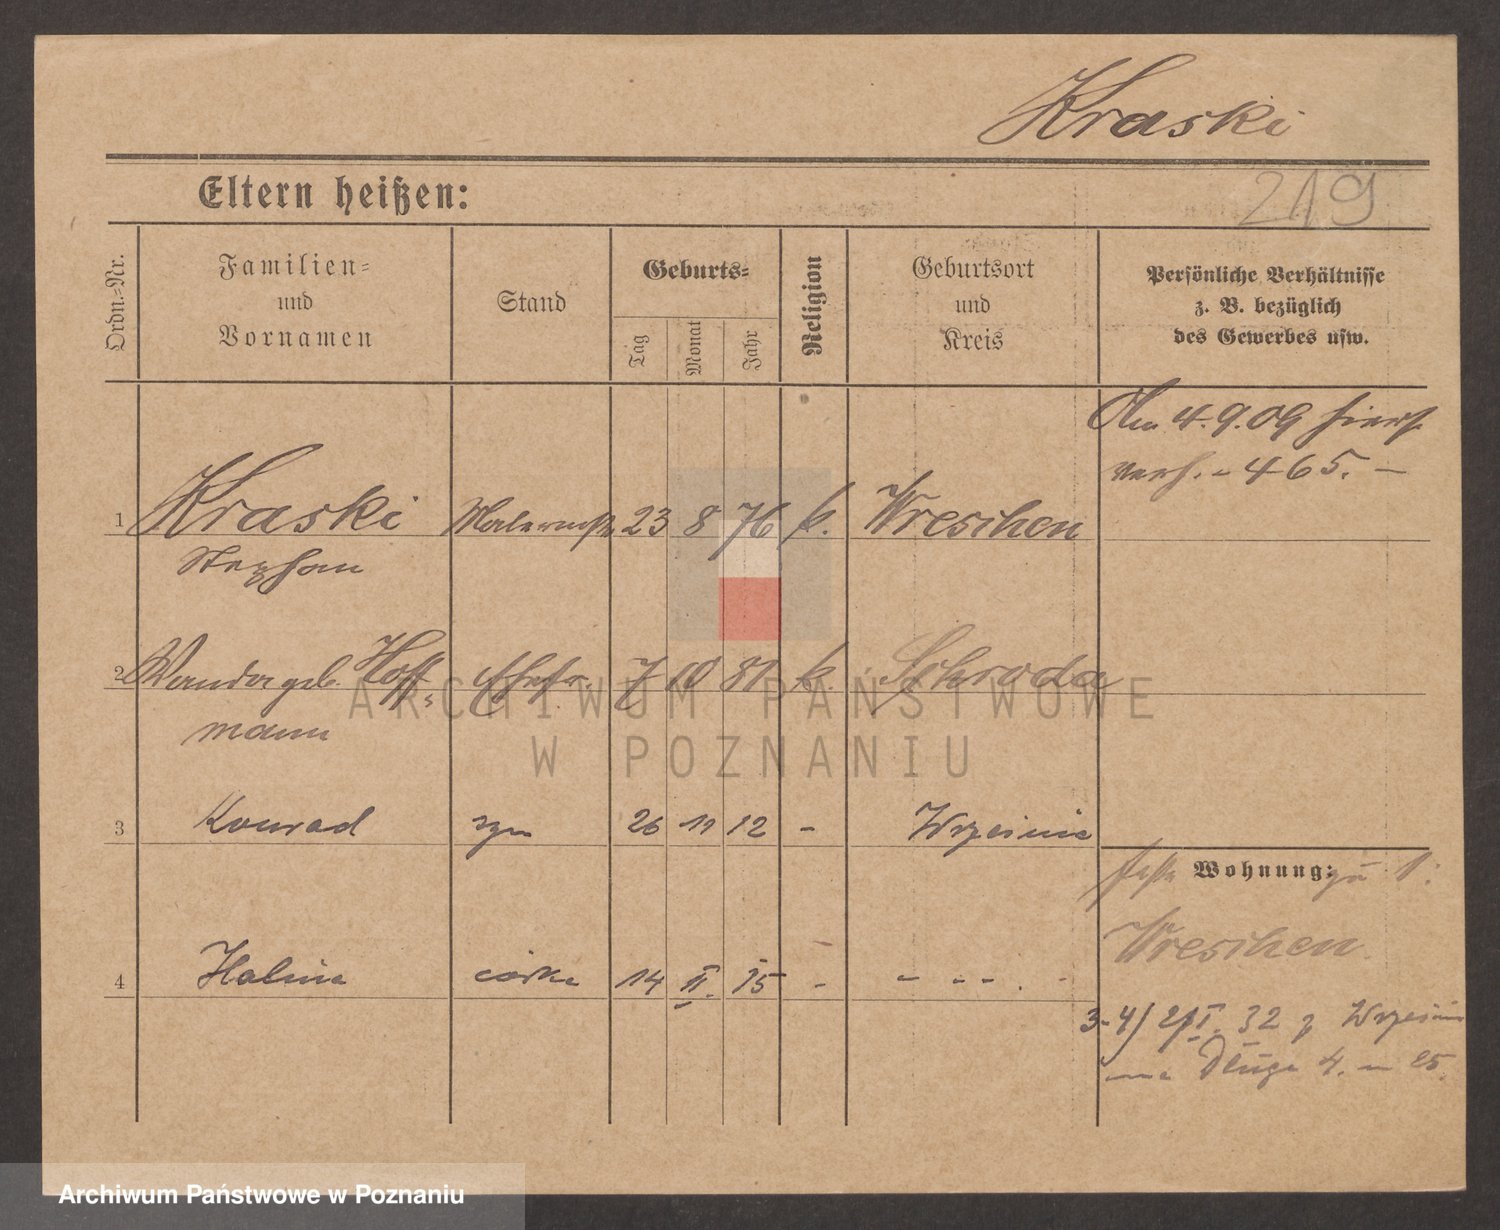 Kraski
219
Eltern heißen:
Ordn.-Nr.
Familien-
und
Vornamen
Stand
Geburts-
Tag
Monat
Jahr
Religion
Geburtsort
und
Kreis
Persönliche Verhältnisse
z. B. bezüglich
des Gewerbes usw.
Am 4.9.09 hiers.
verh. - 465. -
1 Kraski Malermstr. 23 8 76 k. Wreschen
Stephan
2 Wanda geb. Hoff- Ehefr. 7 10 81 k. Schroda
mann
3 Konrad syn 26 11 12 - Września
Wohnung: zu 1:
Wreschen
4 Halina córka 14 II. 15 - - - - . -
3-4) I. 32 z Wrześni
na Długa 4. m 25.
ARCHIWUM PAŃSTWOWE
W POZNANIU
Archiwum Państwowe w Poznaniu